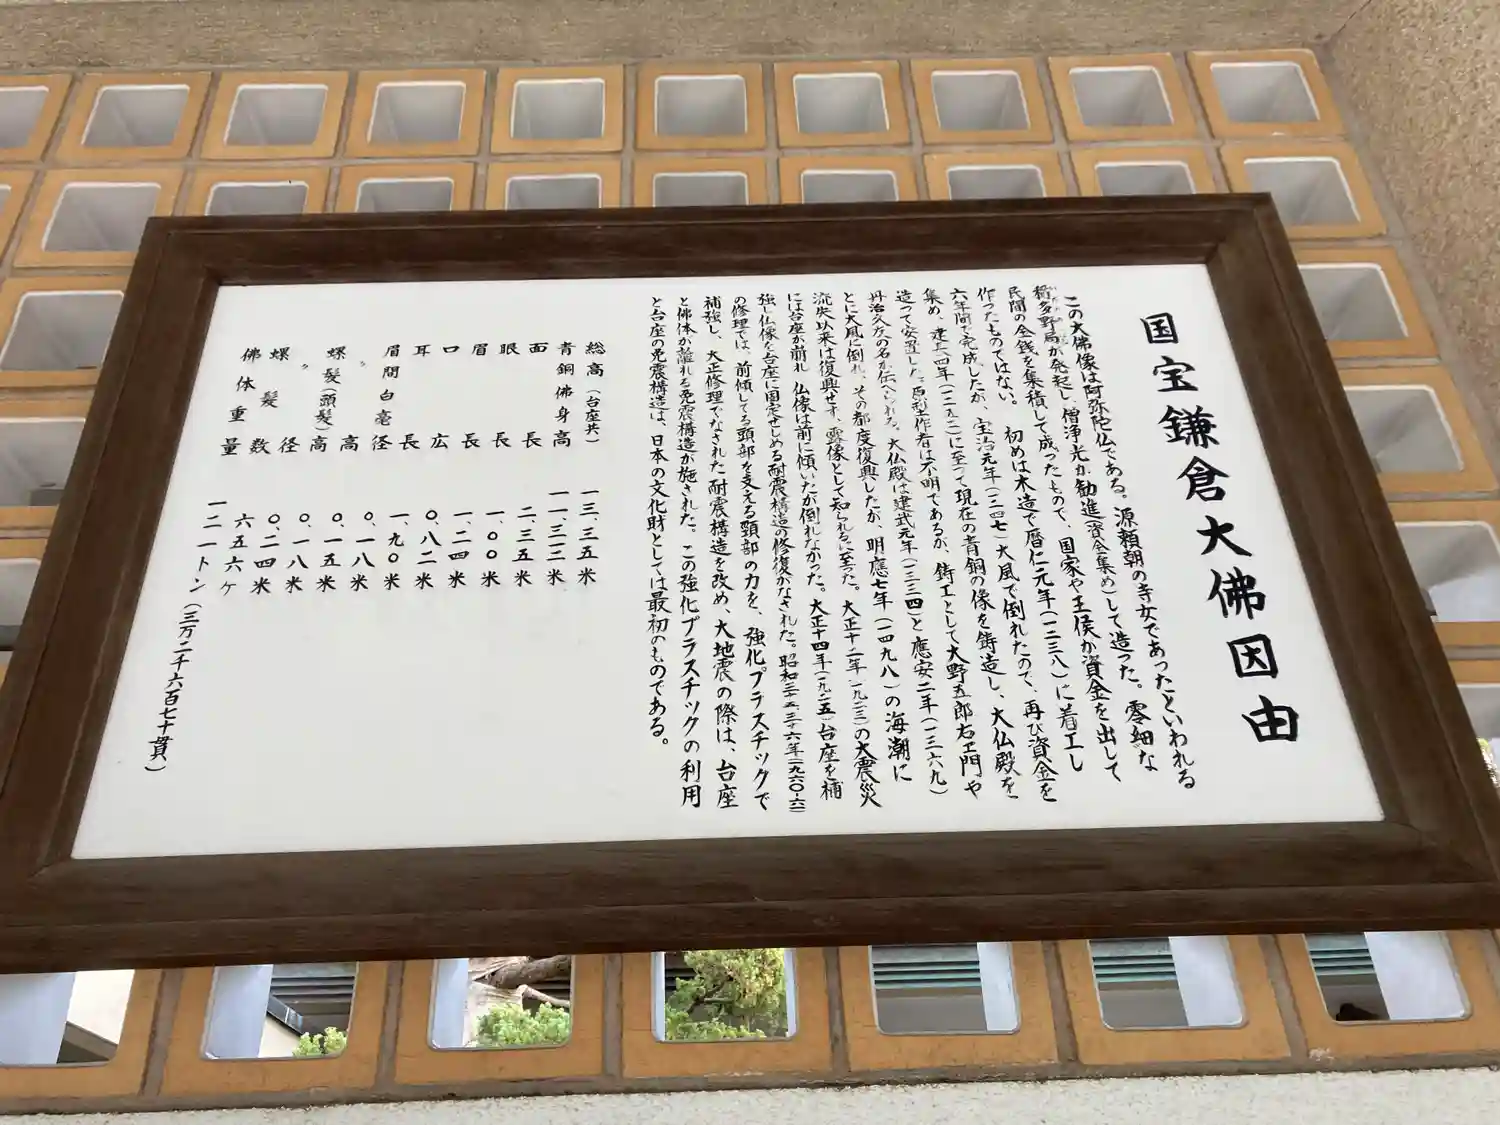 国宝鎌倉大佛因由
この大佛像は阿弥陀仏である。源頼朝の寺女であったといわれる
稲多野局が発起し、僧浄光が勧進(資金集め)して造った。零細な
民間の金銭を集積して成ったもので、国家や王侯が資金を出して
作ったものではない。初めは木造で暦仁元年(一二三八)に着工し
六年間で完成したが、宝治元年(一二四七)大風で倒れたので、再び資金を
集め、建長四年(一二五二)に至って現在の青銅の像を鋳造し、大仏殿を
造って安置した。原型作者は不明であるが、鋳工として大野五郎右ヱ門や
丹治久友の名が伝へられる。大仏殿は建武元年(一三三四)と應安二年(一三六九)
とに大風に倒れ、その都度復興したが、明應七年(一四九八)の海潮に
流失以来は復興せず、露像として知られるに至った。大正十二年(一九二三)の大震災
には台座が崩れ 仏像は前に傾いたが倒れなかった。大正十四年(一九二五)台座を補
強し仏像を台座に固定せしめる耐震構造の修復がなされた。昭和三十五、三十六年(一九六〇-六一)
の修理では、前傾してる頭部を支える頸部の力を、強化プラスチックで
補強し、大正修理でなされた耐震構造を改め、大地震の際は、台座
と佛体が離れる免震構造が施された。この強化プラスチックの利用
と台座の免震構造は、日本の文化財としては最初のものである。
総高(台座共) 一三、三五米
青銅佛身高 一一、三一二米
面長 二、三五米
眼長 一、〇〇米
眉長 一、二四米
口広 〇、八二米
耳長 一、九〇米
眉間白毫径 〇、一八米
〃 高
螺髪(頭髪)高 〇、一五米
〃 径 〇、一八米
螺髪数 六五六ケ
佛体重量 一二一トン(三万二千六百七十貫)